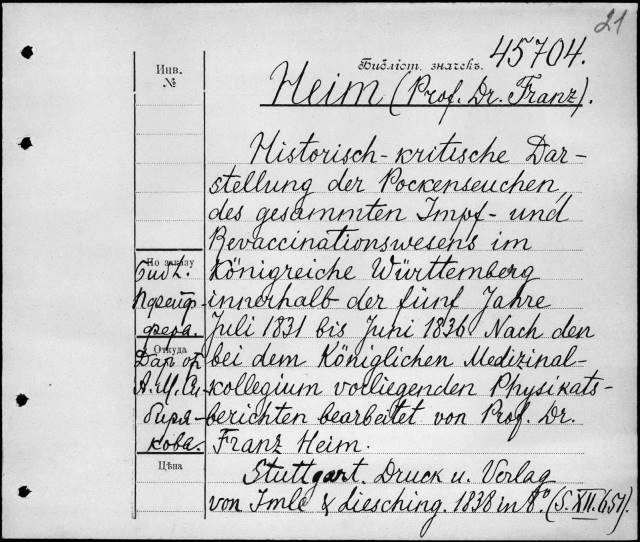 21
Библіот. значекъ. 45704.
Инв. №
Heim (Prof. Dr. Franz).
Historisch-kritische Dar-
stellung der Pockenseuchen,
des gesammten Impf- und
Revaccinationswesens im
Königreiche Württemberg
innerhalb der fünf Jahre
Juli 1831 bis Juni 1836 Nach den
bei dem Königlichen Medizinal-
kollegium vorliegenden Physikats-
berichten bearbeitet von Prof. Dr.
Franz Heim.
Stuttgart. Druck u. Verlag
von Imle & Liesching. 1838 in 8.° (S. XII. 651).
По заказу
Библ.
Пфейф-
фера.
Откуда
Даръ отъ
А. М. Си-
биря-
кова.
Цѣна